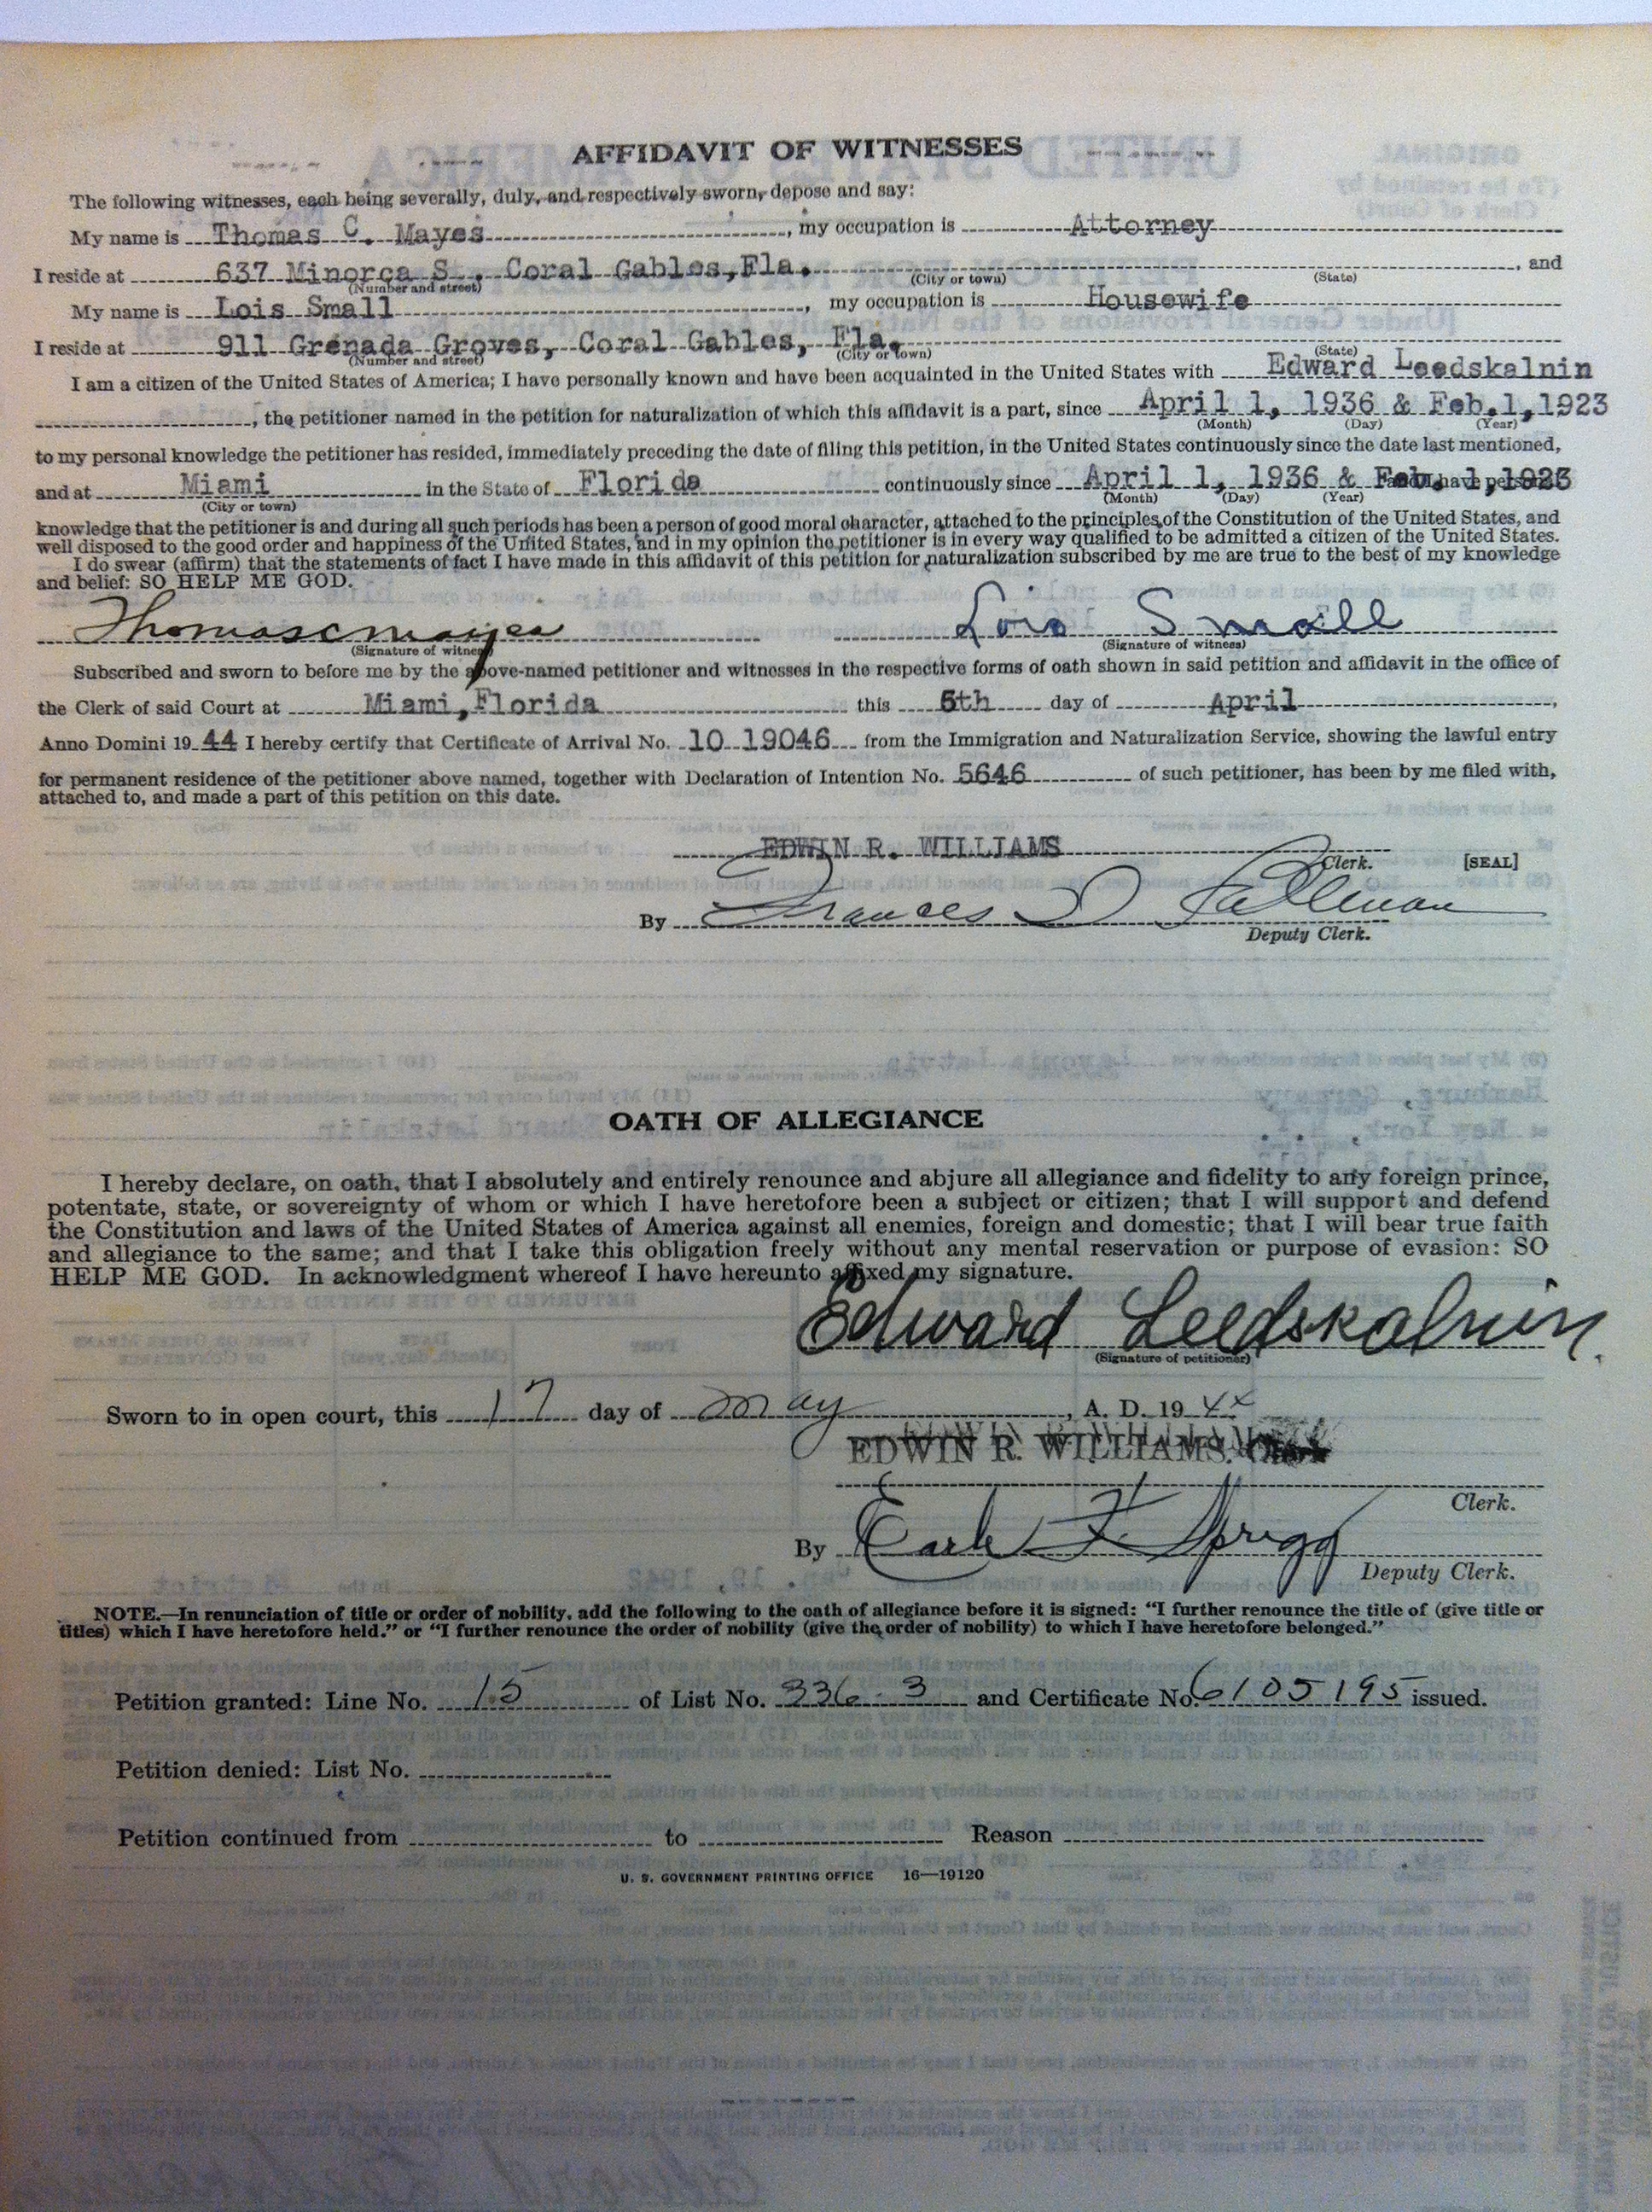 AFFIDAVIT OF WITNESSES
The following witnesses, each being severally, duly, and respectively sworn, depose and say:
My name is Thomas C. Mayes, my occupation is Attorney
I reside at 637 Minorca S. , Coral Gables, Fla. , and
(Number and street) (City or town) (State)
My name is Lois Small, my occupation is Housewife
I reside at 911 Grenada Groves, Coral Gables, Fla.
(Number and street) (City or town) (State)
I am a citizen of the United States of America; I have personally known and have been acquainted in the United States with Edward Leedskalnin
, the petitioner named in the petition for naturalization of which this affidavit is a part, since April 1, 1936 & Feb.1,1923
(Month) (Day) (Year)
to my personal knowledge the petitioner has resided, immediately preceding the date of filing this petition, in the United States continuously since the date last mentioned,
and at Miami in the State of Florida continuously since April 1, 1936 & Feb. 1,1923 and I have personal
(City or town) (Month) (Day) (Year)
knowledge that the petitioner is and during all such periods has been a person of good moral character, attached to the principles of the Constitution of the United States, and
well disposed to the good order and happiness of the United States, and in my opinion the petitioner is in every way qualified to be admitted a citizen of the United States.
I do swear (affirm) that the statements of fact I have made in this affidavit of this petition for naturalization subscribed by me are true to the best of my knowledge
and belief: SO HELP ME GOD.
Thomas C Mayes Lois Small
(Signature of witness) (Signature of witness)
Subscribed and sworn to before me by the above-named petitioner and witnesses in the respective forms of oath shown in said petition and affidavit in the office of
the Clerk of said Court at Miami, Florida this 5th day of April,
Anno Domini 19 44 I hereby certify that Certificate of Arrival No. 10 19046 from the Immigration and Naturalization Service, showing the lawful entry
for permanent residence of the petitioner above named, together with Declaration of Intention No. 5646 of such petitioner, has been by me filed with,
attached to, and made a part of this petition on this date.
EDWIN R. WILLIAMS
Clerk. [SEAL]
By Frances D
Deputy Clerk.
OATH OF ALLEGIANCE
I hereby declare, on oath, that I absolutely and entirely renounce and abjure all allegiance and fidelity to any foreign prince,
potentate, state, or sovereignty of whom or which I have heretofore been a subject or citizen; that I will support and defend
the Constitution and laws of the United States of America against all enemies, foreign and domestic; that I will bear true faith
and allegiance to the same; and that I take this obligation freely without any mental reservation or purpose of evasion: SO
HELP ME GOD. In acknowledgment whereof I have hereunto affixed my signature.
Edward Leedskalnin.
(Signature of petitioner)
Sworn to in open court, this 17 day of May, A. D. 19 44
EDWIN R. WILLIAMS, Clerk
Clerk.
By Earle F. Sprigg
Deputy Clerk.
NOTE.—In renunciation of title or order of nobility, add the following to the oath of allegiance before it is signed: “I further renounce the title of (give title or
titles) which I have heretofore held.” or “I further renounce the order of nobility (give the order of nobility) to which I have heretofore belonged.”
Petition granted: Line No. 15 of List No. 336-3 and Certificate No. 6105195 issued.
Petition denied: List No.
Petition continued from to Reason
U. S. GOVERNMENT PRINTING OFFICE 16—19120